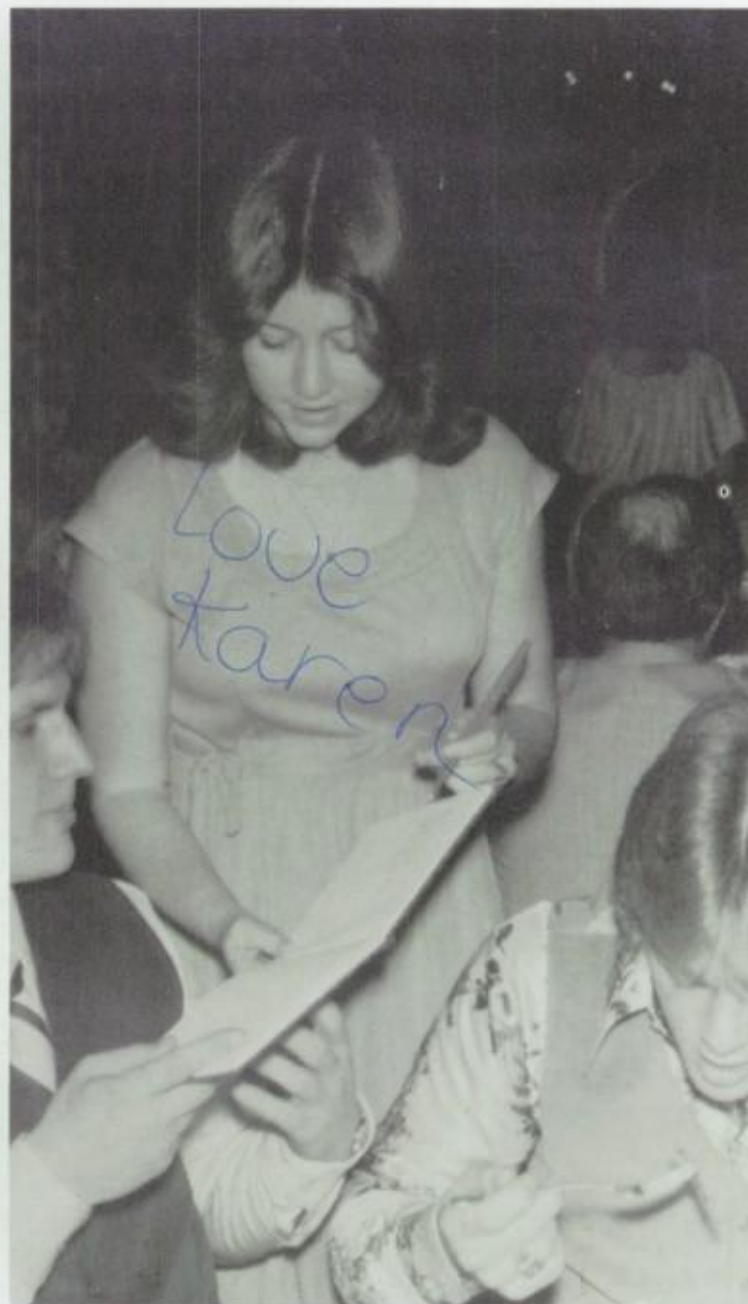 Love
Karen